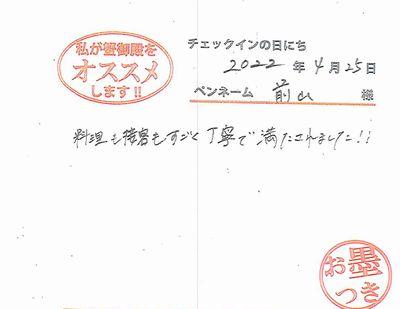 私が蟹御殿を
オススメ
します!!
チェックインの日にち
2022年4月25日
ペンネーム 前山 様
料理も接客もすごく丁寧で満たされました!!
お墨
つき